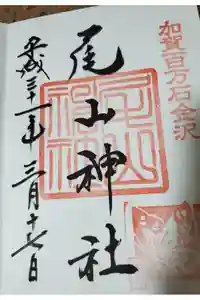 加賀百万石金沢
尾山神社
平成三十一年三月十七日